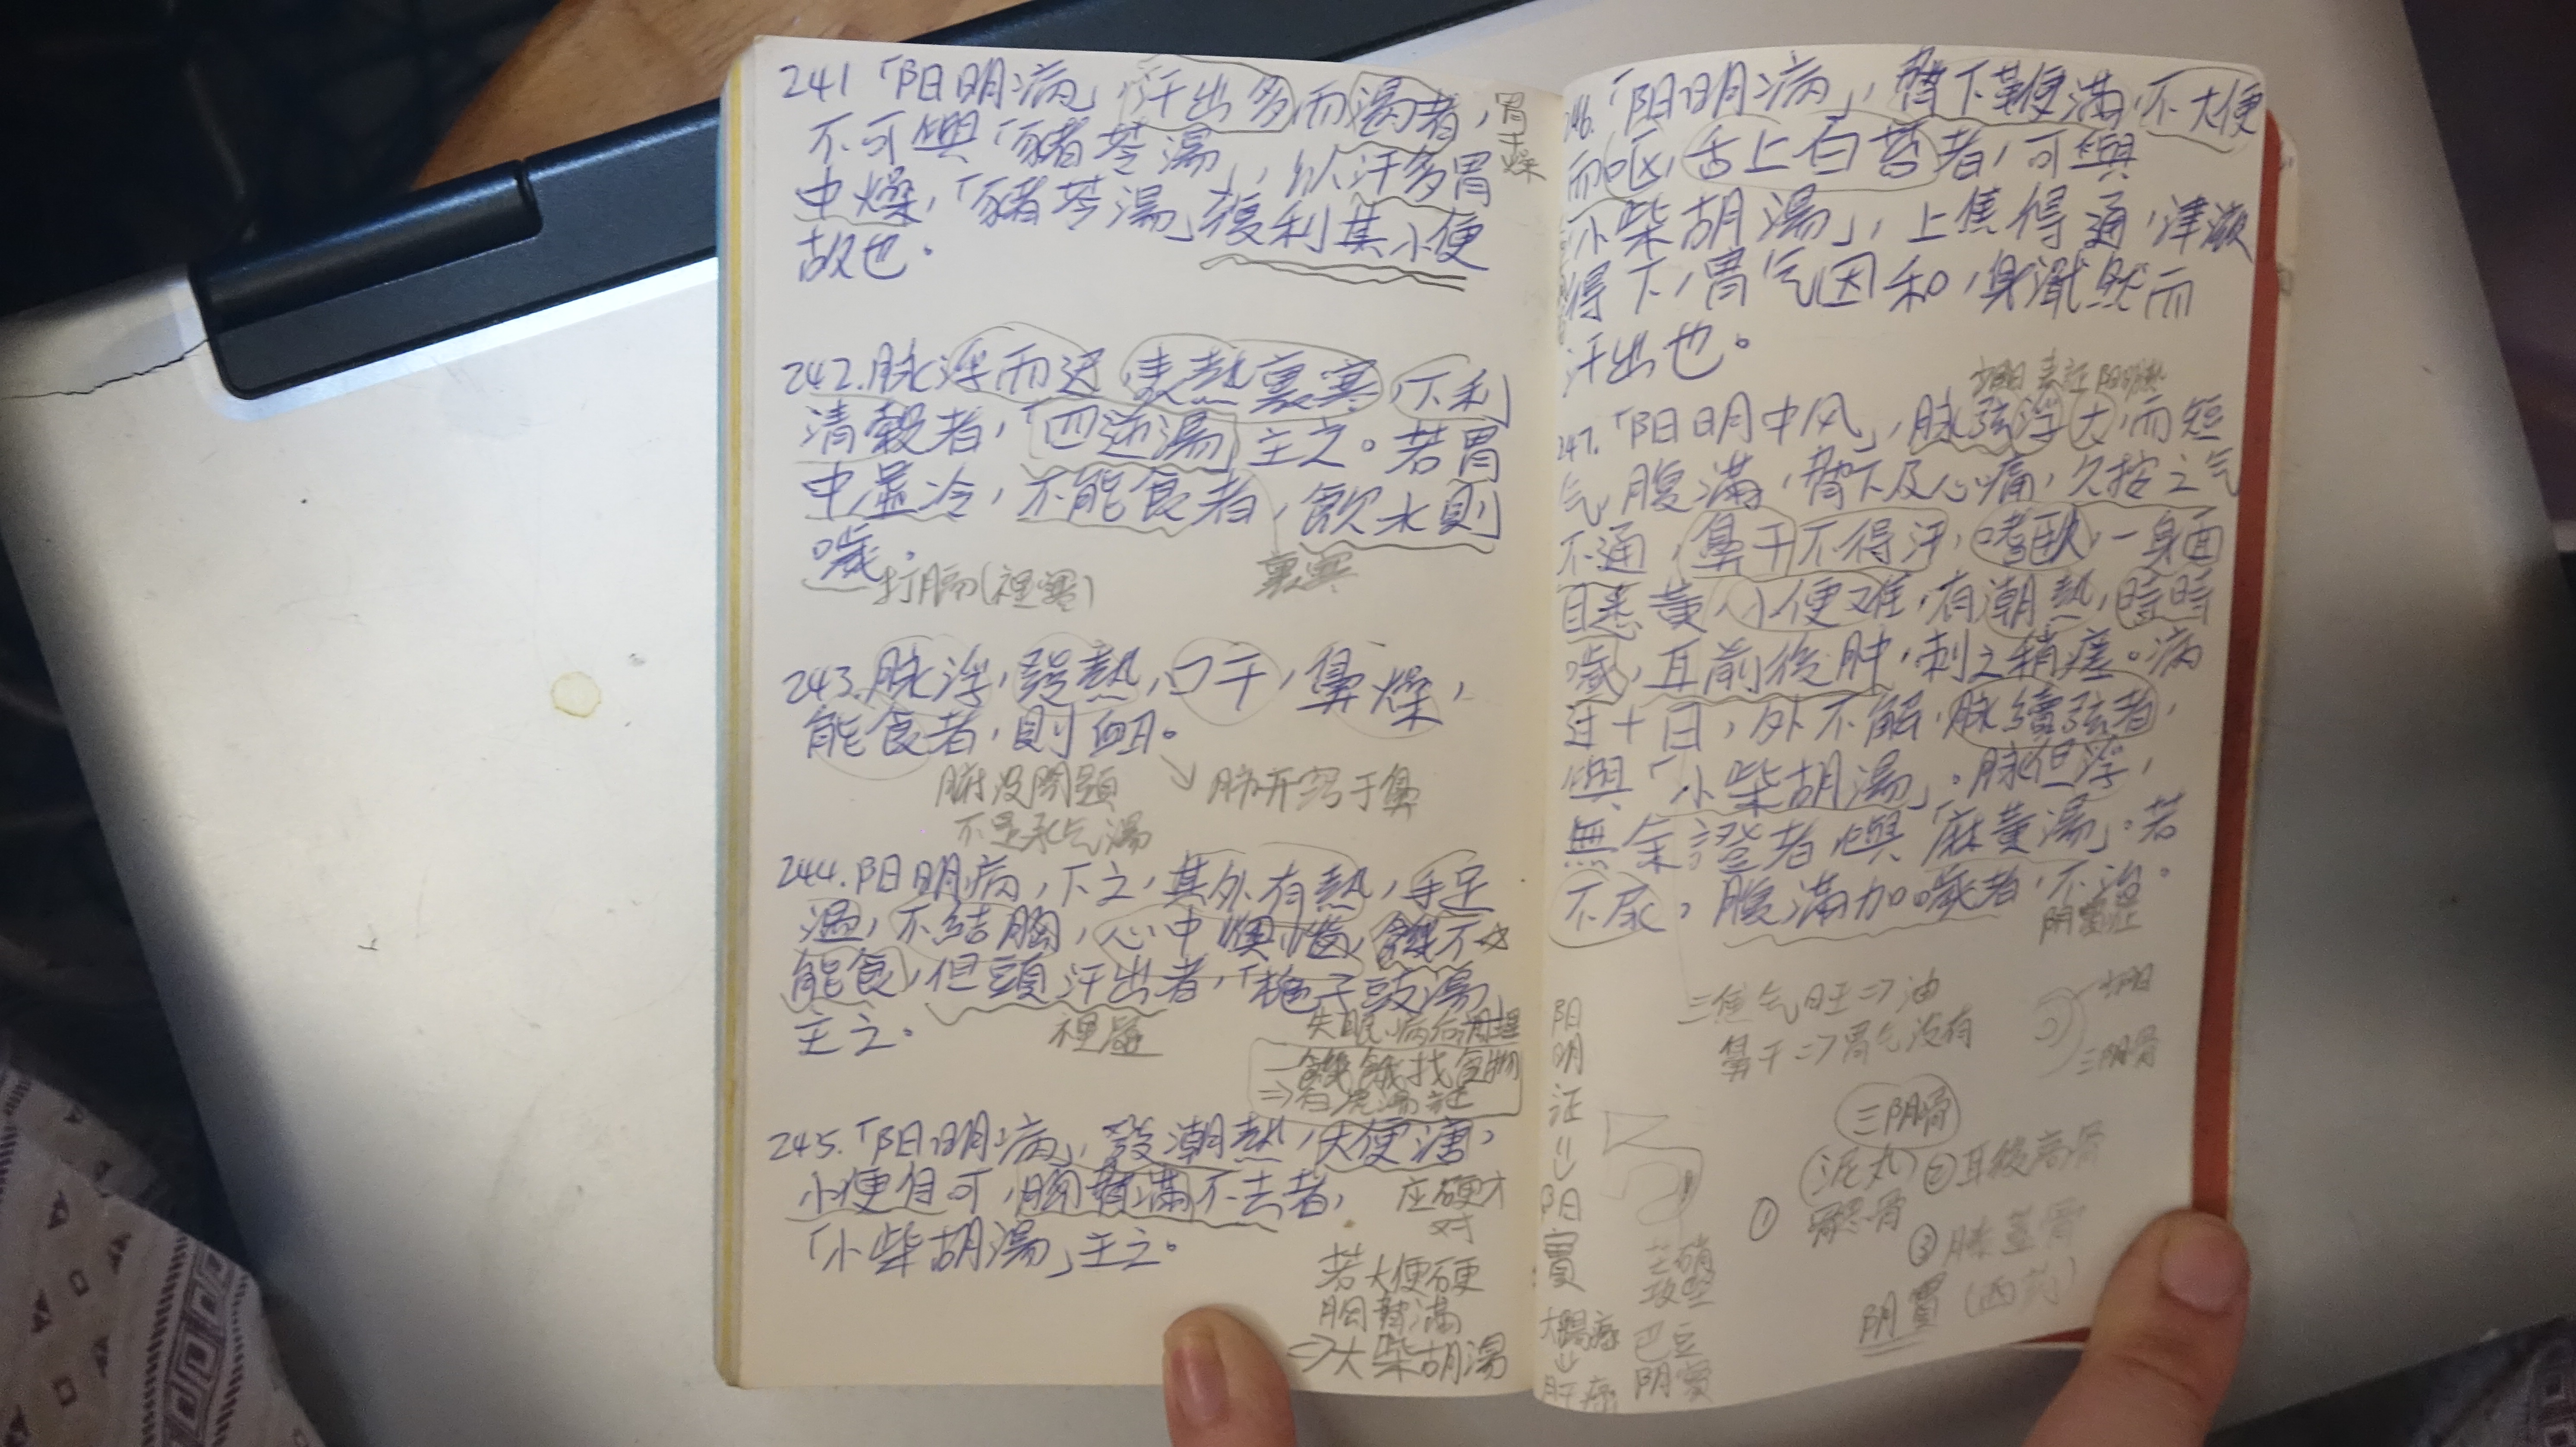 241「阳明病」,汗出多而渴者,
不可與「豬苓湯」,以汗多胃
中燥,「豬苓湯」復利其小便
故也。
胃
干
燥
242.脉浮而迟,表熱裏寒,下利
清穀者,「四逆湯」主之。若胃
中虛冷,不能食者,飲水則
噦。
裏寒
243.脉浮,發熱,口干,鼻燥,
能食者,則衄。
腑没問題
不是承气湯
↘肺开窍于鼻
244.阳明病,下之,其外有熱,手足
温,不結胸,心中懊憹,饑不
能食,但頭汗出者,「梔子豉湯」
主之。
裡虛
失眠、病后調理
饑餓找食物
⇒白虎湯証
245.「阳明病」,發潮熱,大便溏,
小便自可,胸脅滿不去者,
「小柴胡湯」主之。
应硬才
对
若大便硬
胸脅滿
⇒大柴胡湯
246.「阳明病」,脅下鞕滿,不大便
而呕,舌上白苔者,可與
「小柴胡湯」,上焦得通,津液
得下,胃气因和,身濈然而
汗出也。
247.「阳明中风」,脉弦浮大,而短
气,腹滿,脅下及心痛,久按之气
不通,鼻干不得汗,嗜臥,一身面
目悉黃,小便难,有潮熱,時時
噦,耳前後肿,刺之稍瘥。病
过十日,外不解,脉續弦者,
與「小柴胡湯」。脉但浮,
無余證者,與「麻黄湯」。若
不尿,腹滿加噦者,不治。
阴實証
三焦气旺⇒油
鼻干⇒胃气没有
少阳
三阴骨
三阴骨
泥丸 ②耳後高骨
①
③膝蓋骨
阴實(西药)
阳
明
证
⇓
阴
實
大腸癌
↓
肝癌
芒硝
攻坚
巴豆
阴實